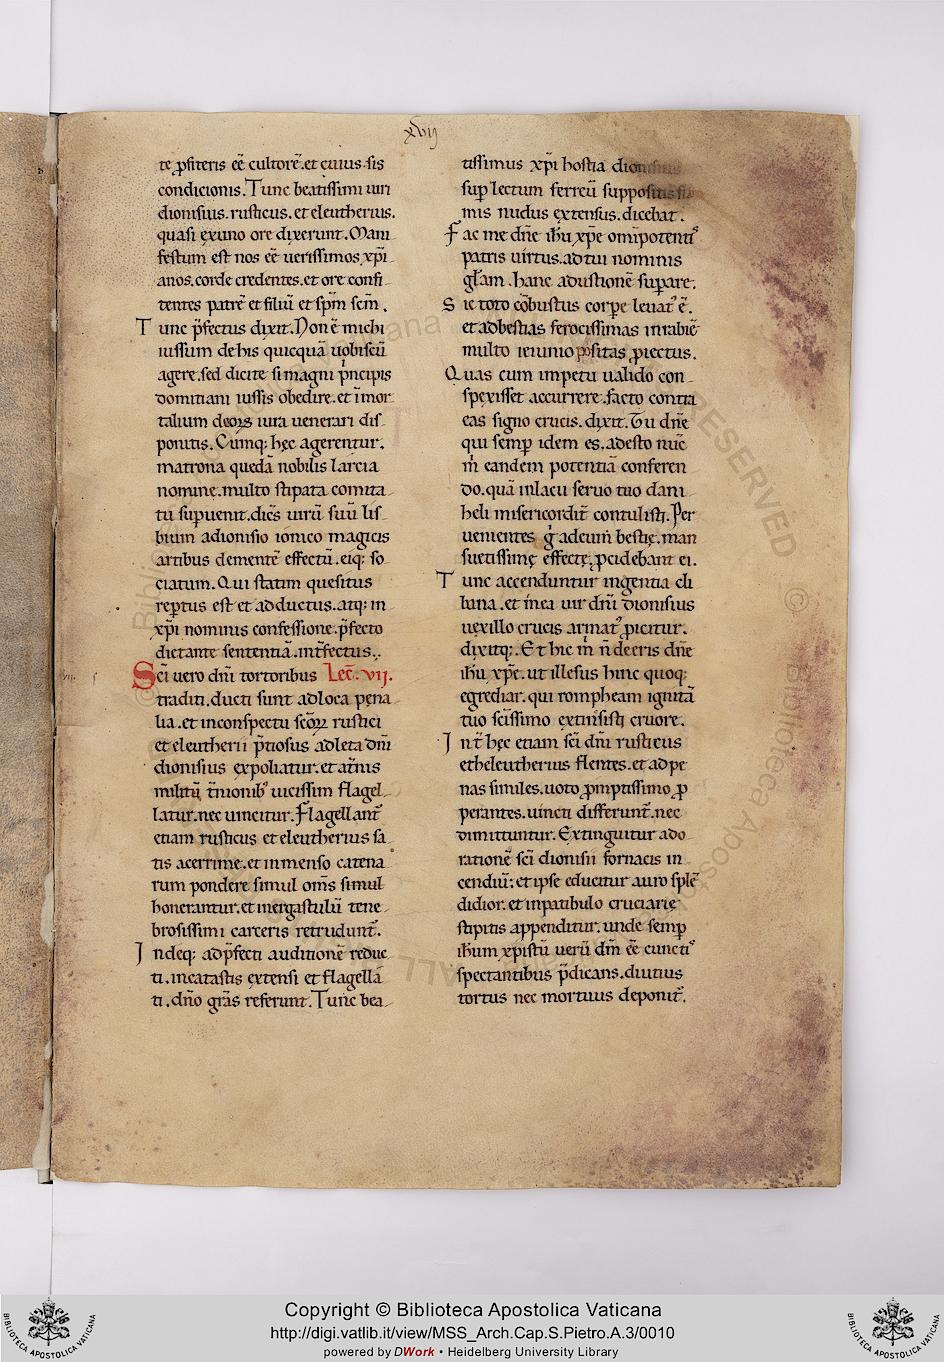 xvij
te ꝓfiteris eē cultorē. et cuius sis
condicionis. Tunc beatissimi uiri
dionisius. rusticus. et eleutherius.
quasi ex uno ore dixerunt. Mani
festum est nos eē uerissimos xp̄i
anos. corde credentes. et ore confi
tentes patrē et filiū et sp̄m sc̄m.
Tunc p̄fectus dixit. Non ē michi
iussum de his quicquā uobiscū
agere. sed dicite si magni p̄ncipis
domitiani iussis obedire. et īmor
talium deoꝝ iura uenerari dis
ponitis. Cumq; hęc agerentur.
matrona quedā nobilis larcia
nomine. multo stipata comita
tu supuenit. dicēs uirū suū lis
bium a dionisio ionico magicis
artibus dementē effectū. eiq; so
ciatum. Qui statim quesitus
reptus est et adductus. atq; in
xp̄i nominis confessione. p̄fecto
dictante sententiā. int̄fectus.
Sc̄i uero dn̄i tortoribus Lec̄. vij.
traditi. ducti sunt ad loca pena
lia. et in conspectu sc̄oꝝ rustici
et eleutherii p̄tiosus adleta dn̄i
dionisius expoliatur. et at̄nis
militū t̄nionib; uicissim flagel
latur. nec uincitur. Flagellant̄
etiam rusticus et eleutherius sa
tis acerrime. et inmenso catena
rum pondere simul om̄s simul
honerantur. et in ergastulū tene
brosissimi carceris retrudunt̄.
Indeq; ad p̄fecti auditionē reduc
ti. in catastis extensi et flagellā
ti. dn̄o gr̄as referunt. Tunc bea
tissimus xp̄i hostia dionisius
sup lectum ferreū suppositis
mis nudus extensus. dicebat.
Fac me dn̄e ih̄u xp̄e omīpotentis
patris uirtus. ad tui nominis
gl̄am. hanc adustionē supare.
Sic toto cōbustus corpe leuat᷒ ē.
et ad bestias ferocissimas in rabiē
multo ieiunio positas ꝓiectus.
Quas cum impetu ualido con
spexisset accurrere. facto contra
eas signo crucis. dixit. Tu dn̄e
qui semp idem es. adesto nūc
m̄ eandem potentiā conferen
do. quā in lacu seruo tuo dani
heli misericordit̄ contulisti. Per
uenientes g̊ ad eum bestię. man
suetissimę effectę. ꝓcidebant ei.
Tunc accenduntur ingentia cli
bana. et in ea uir dn̄i dionisius
uexillo crucis armat᷒ ꝓicitur.
dixitq;. Et hic m̄ n̄ deeris dn̄e
ih̄u xp̄e. ut illesus hinc quoq;
egrediar. qui rompheam ignitā
tuo sc̄issimo extinxisti cruore.
Int̄ hęc etiam sc̄i dn̄i rusticus
et heleutherius flentes. et ad pe
nas similes. uoto ꝓmptissimo ꝓ
perantes. uincti differunt̄. nec
dimittuntur. Extinguitur ado
rationē sc̄i dionisii fornacis in
cendiū: et ipse educitur auro splē
didior. et in patibulo cruciarię
stipitis appenditur. unde semp
ih̄um xpistū uerū dm̄ eē cunctis
spectantibus p̄dicans. diutius
tortus nec mortuus deponit̄.
Copyright © Biblioteca Apostolica Vaticana
http://digi.vatlib.it/view/MSS_Arch.Cap.S.Pietro.A.3/0010
powered by DWork • Heidelberg University Library